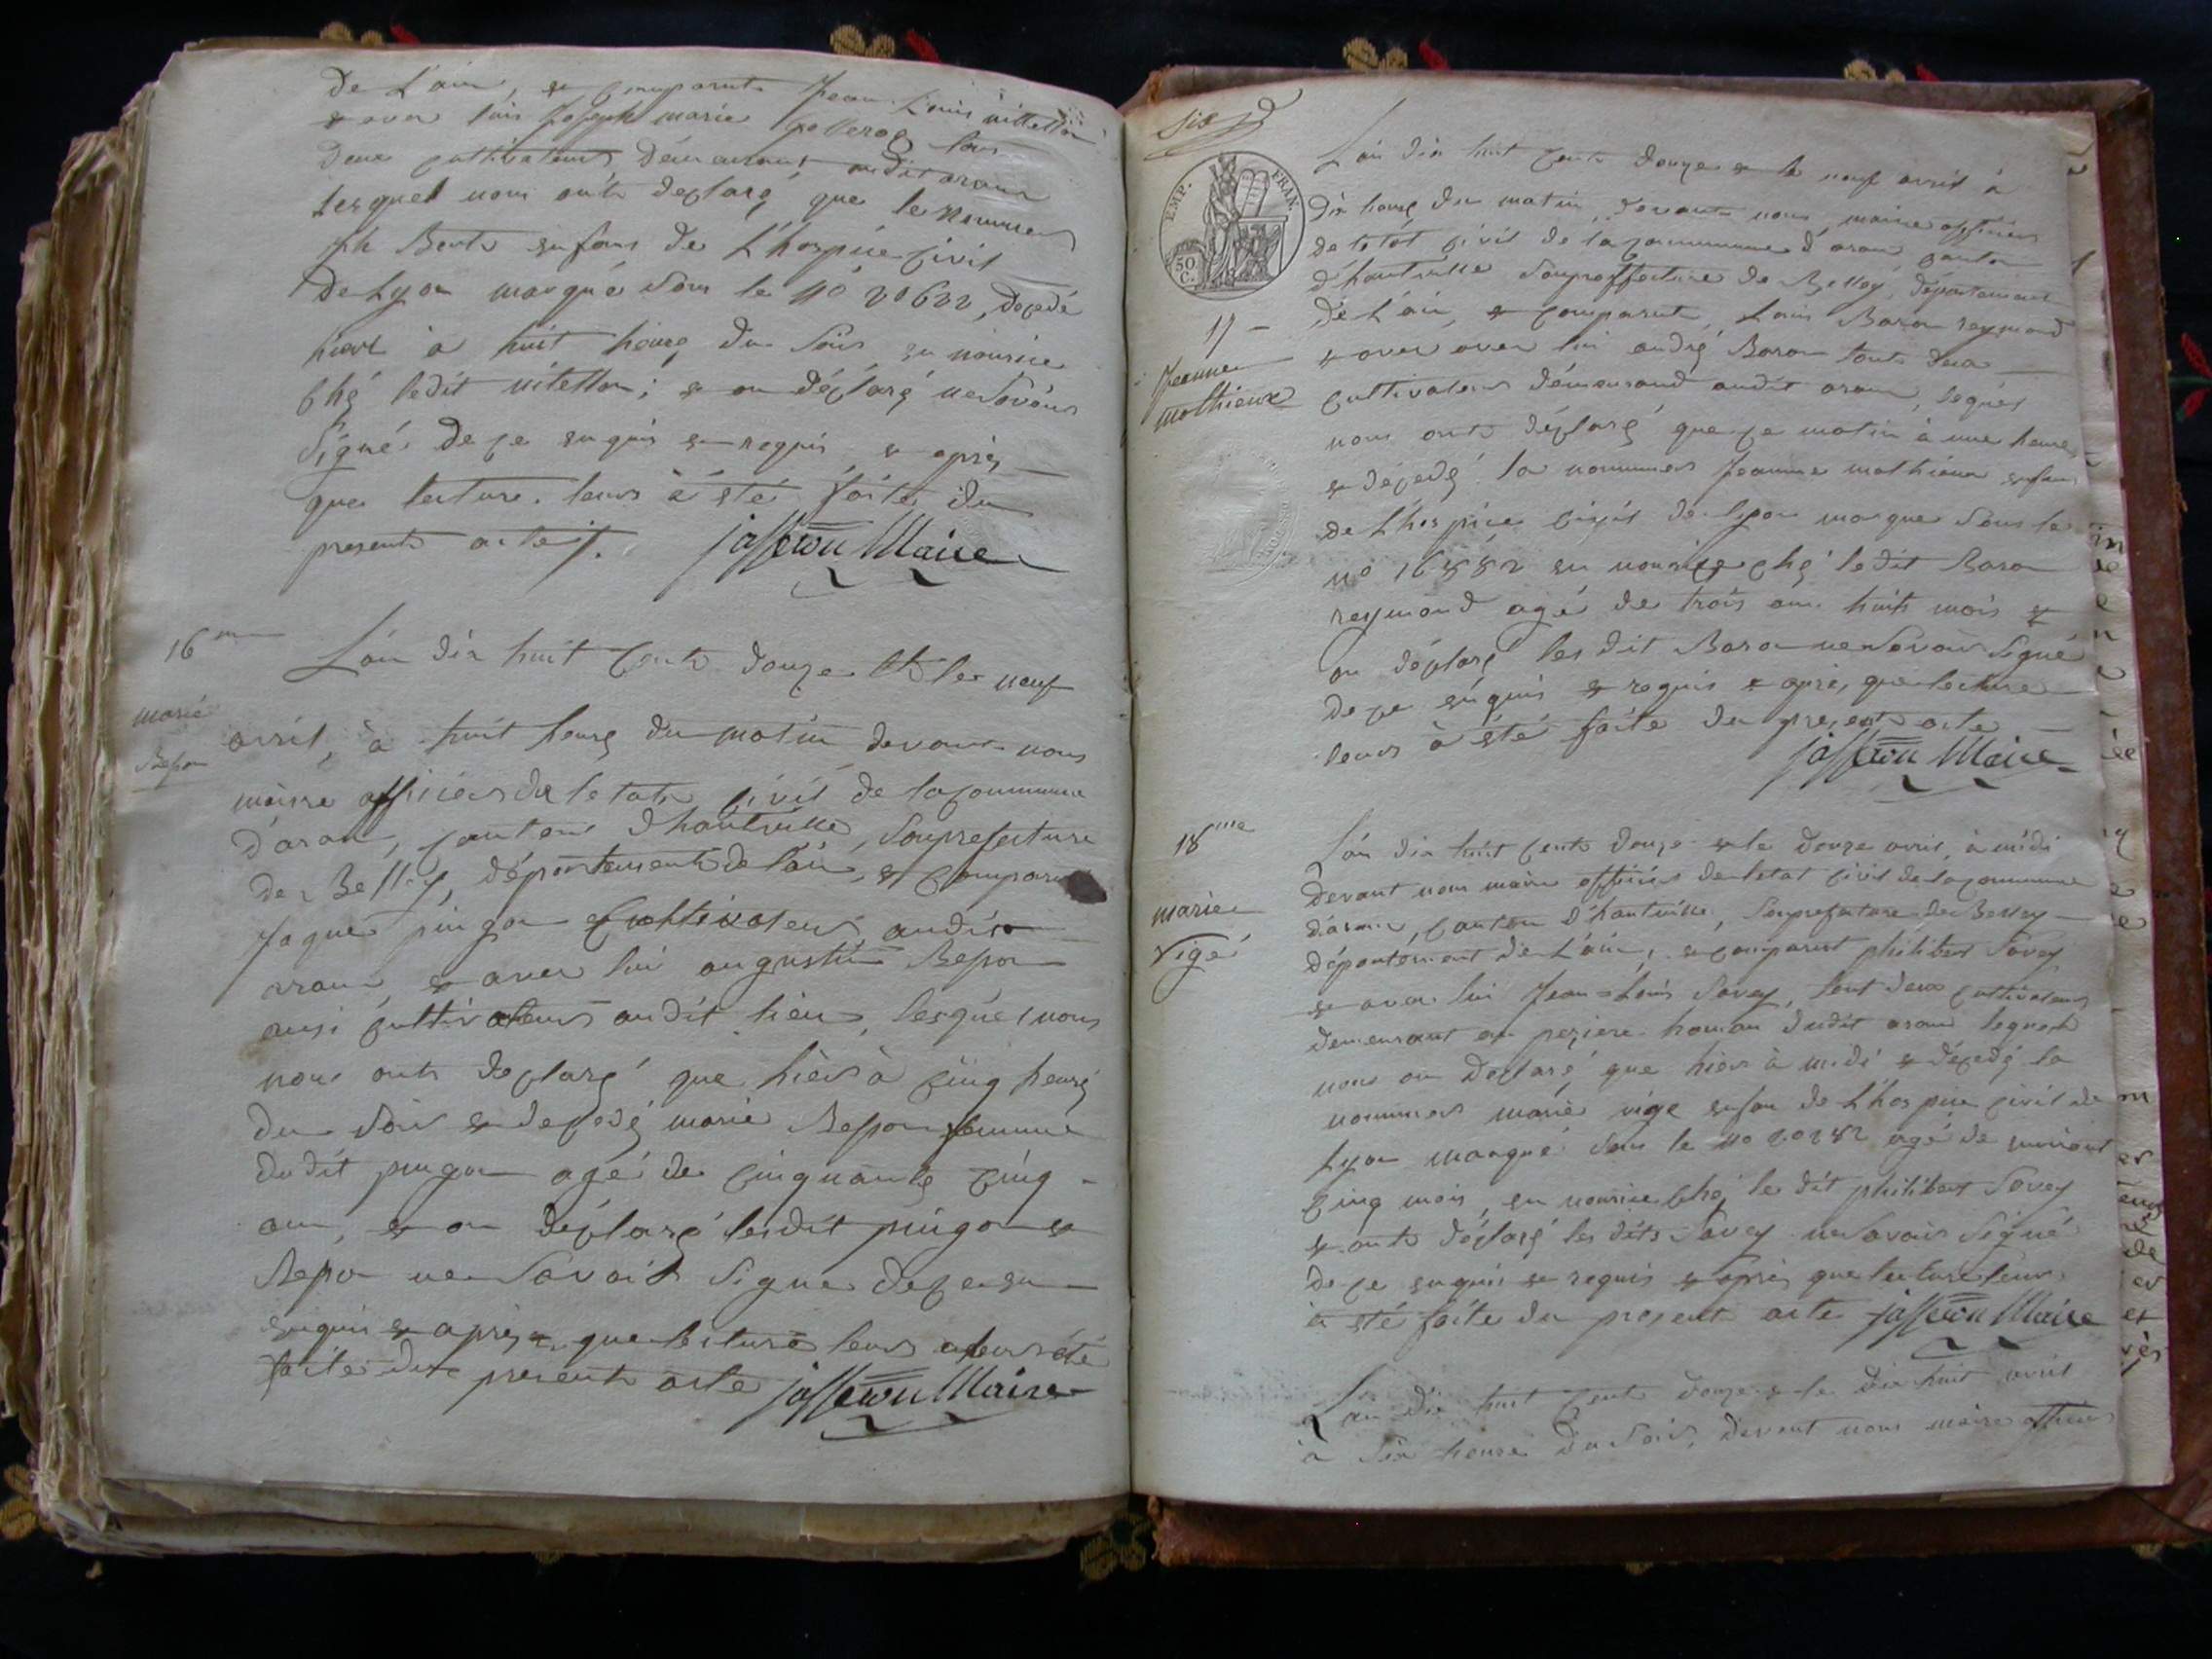 de L'ain, et comparut Jean Louis vittellon
et avec luis Joseph marie
deux cultivateurs démeurant audit aran
lesquel nous onts declaré que le nommer
jph Berte enfans de L'hospice civil
de Lyon marqué sous le No 20622, décedé
hier à huit heure du soir en nourice
ché ledit vitellon; et on déclaré ne savoir
signé de ce enquis et requis et après
que lecture leurs à été faite du
presente acte
jasseron Maire
16me
marie
Beson
L'an dix huit cents douze et le neuf
avril, à huit heure du matin devant nous
maire officier de letats civil de la commune
d'aran, canton d'hautville, souprefecture
de Belley, départements de l'ain, et comparu
Jaque pingon cultivateur audit
aran et avec lui augustin Beson
ausi cultivateurs audit lieu, lesquel nous
nous onts declaré que hier à cinq heure
du soir et decedé marie Beson femme
dudit pingon agé de cinquante cinq
an, et on déclaré lesdit pingon et
Beson ne savoir signe de ce en
enquis et après que lecture leurs été
faite du presente acte jasseron Maire
six
EMP. FRAN.
50 C.
17
Jeanne
mathieux
L'an dix huit cents douze et le neuf avril à
dix heure du matin, devant nous maire officier
de letat civil de la commune d'aran canton
d'hautville soupreffecture de Belley, département
de L'ain, et comparut, Louis Baron reymond
et avec avec lui andré Baron touts deux
cultivateurs démeurand audit aran, lequel
nous onts déclaré que ce matin à une heure
et décedé la nommer Jeanne mathieux enfans
de L'hospice civil de Lyon marque sous le
no 16552 en nourice ché le dit Baron
reymond agé de trois ans huit mois et
on déclaré les dit Baron ne savoir signé
de ce enquis et requis et après que lecture
leurs à été faite du present acte
jasseron Maire
18me
marie
Vigé
L'an dix huit cents douze et le douze avril, à midi
devant nous maire officier de letat civil de la commune
d'aran, canton d'hautville, souprefecture de Belley
département de L'ain, et comparut philibert Savey
et avec lui Jean-Louis Savey, tout deux cultivateurs
demeurant au peziere hamau dudit aran lequel
nous on declaré que hier à midi et décedé la
nommer marie vige enfan de L'hospice civil de
Lyon marqué sous le No 20252 agé de environt
cinq mois, en nourice ché le dit philibert Savey
et onts déclaré les dits Savey ne savoir signé
de ce enquis et requis et après que lecture leur
à été faite du present acte jasseron Maire
L'an dix huit cents douze et le dix huit avril
à six heure du soir, devant nous maire officier